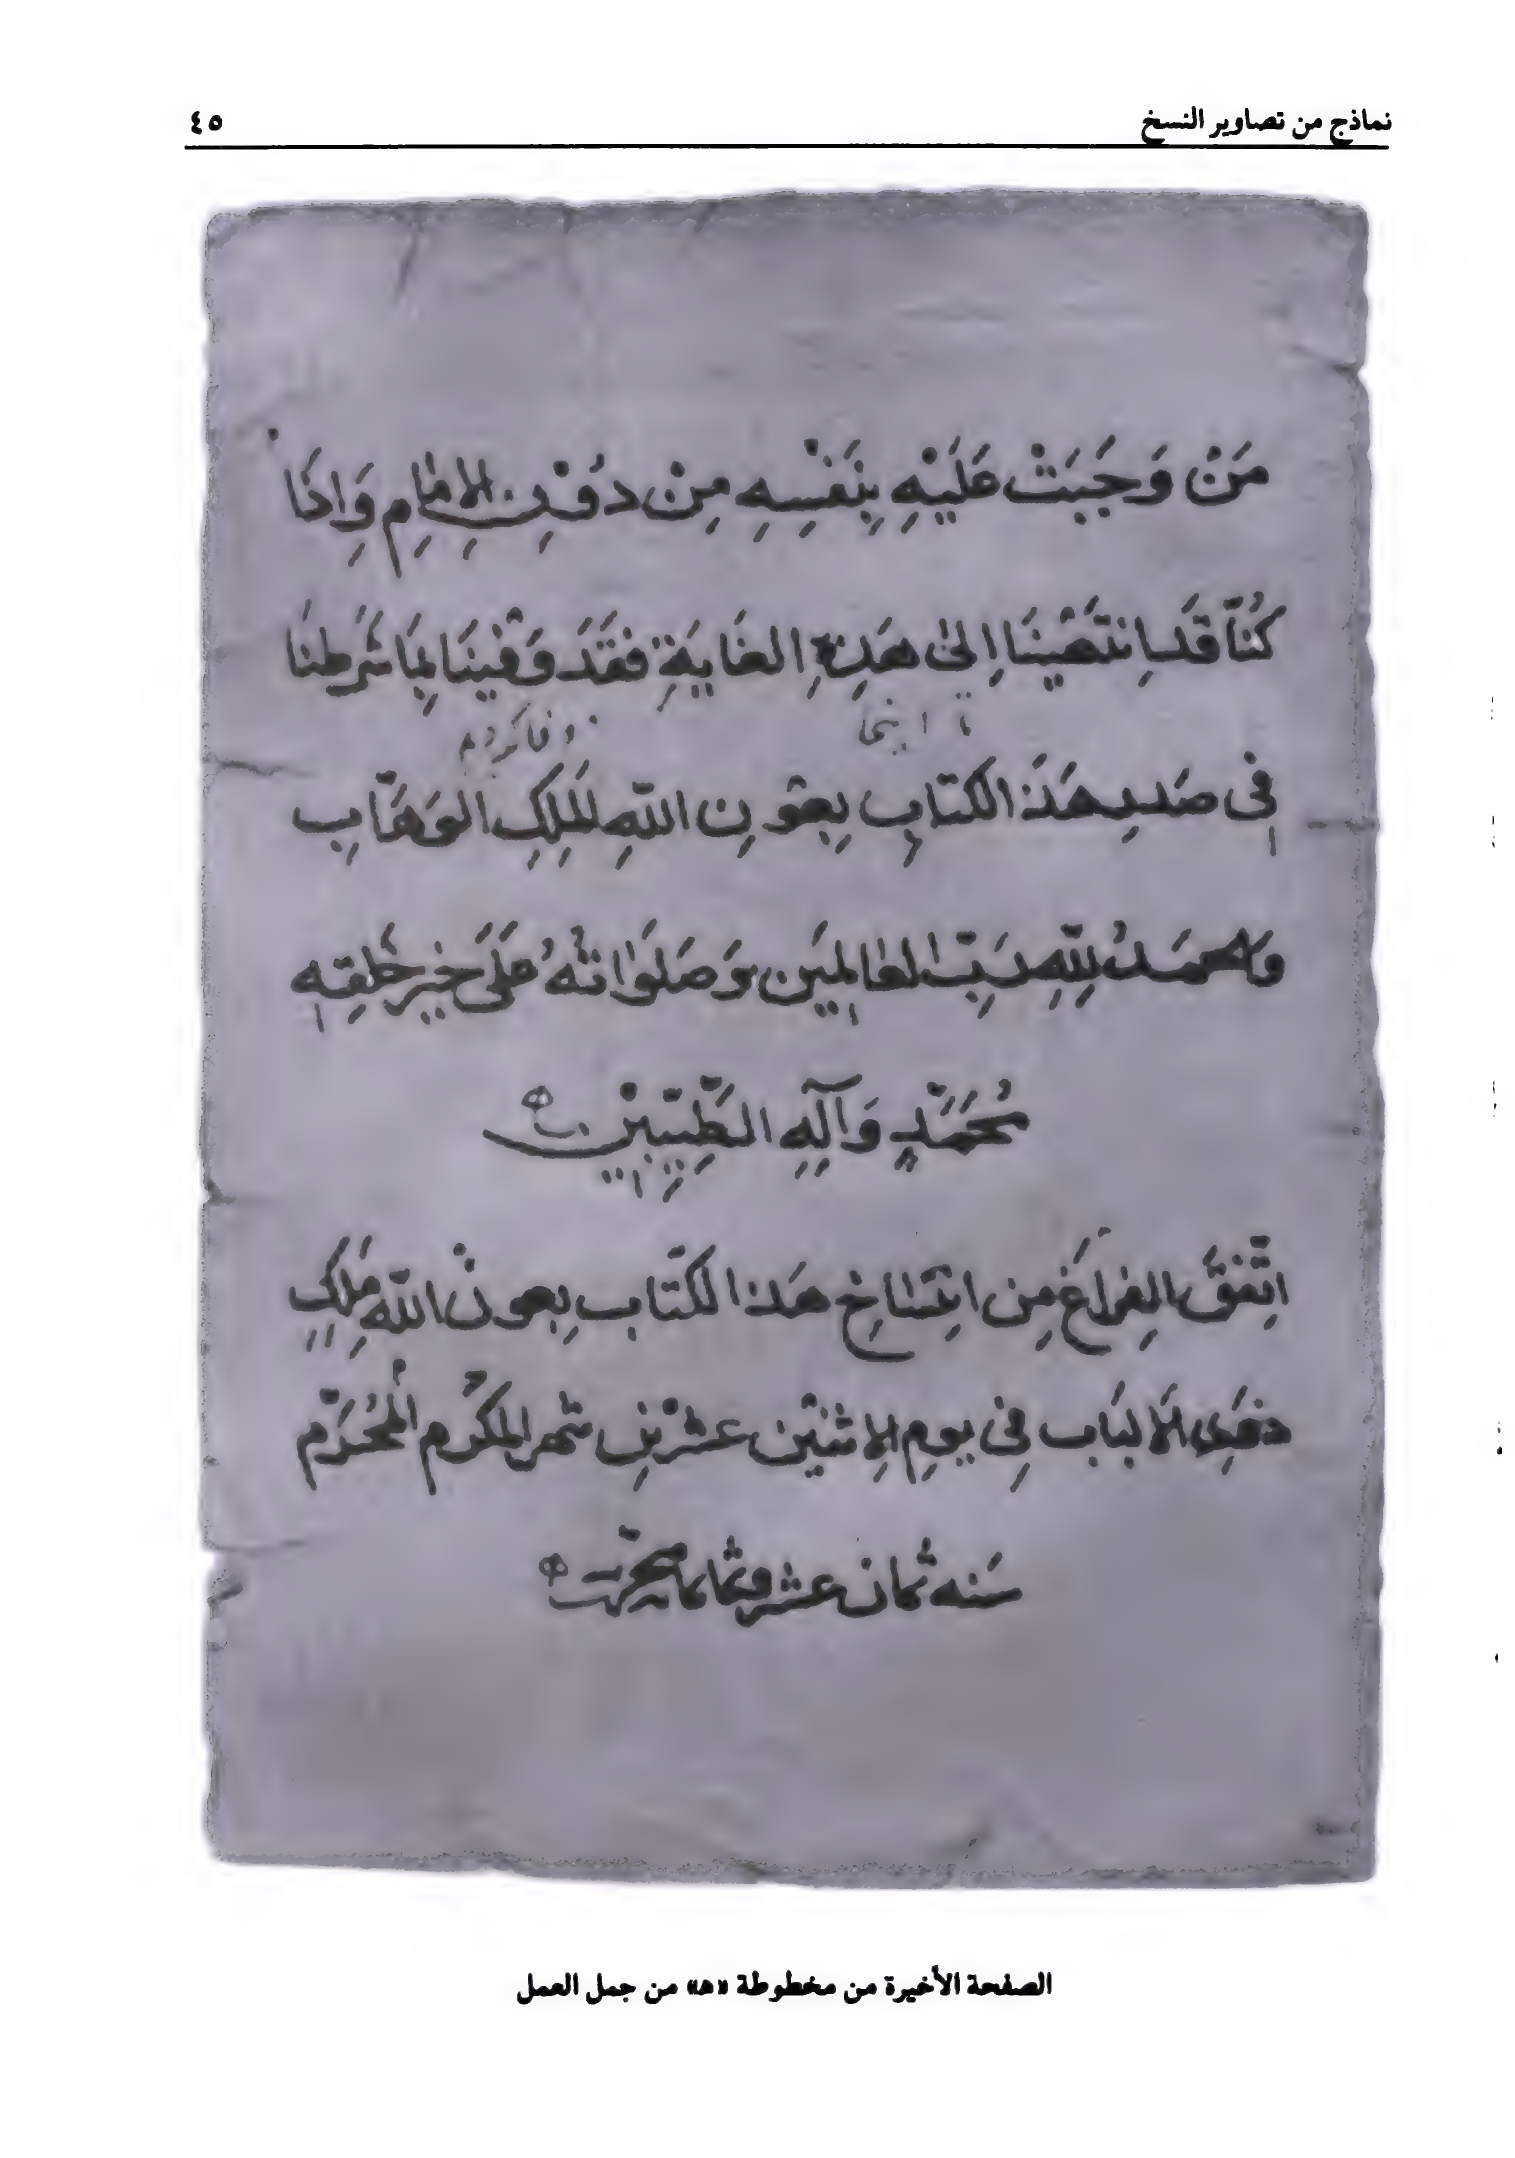 نماذج من تصاوير النسخ
٤٥
مَنْ وَجَبَتْ عَلَيْهِ بِنَفْسِهِ مِنْ دُوْنِ الاِمَامِ وَاِذَا
كُنَّا قَدِ انتَهَيْنَا اِلىٰ هَذِهِ الغَايَةِ فَقَدْ وَفَيْنَا بِمَا شَرَطْنَا
فِى صَدرِ هَذَا الكتَابِ بِعَونِ اللّهِ المَلِكِ الوَهَّابِ
وَالحمَدُ لِلّهِ رَبِّ العَالمِيَن وَصَلَوَاتُهُ عَلَى خيِر خَلقِهِ
مُحَمَّدٍ وَآلِهِ الطَّيِّبِيْنَ
اتِّفقَ الفِراَغُ مِن انتِسَاخِ هَذا الكتَّاب بِعونِ اللّهِ مَلِكِ
الاَلبَاب فِى يومِ الاِثنَيْن عشْرِيْنِ شهر المكَرْم المُحُرَّم
سَنه ثمُان عشر وثمَّانمايه
الصفحة الأخيرة من مخطوطة «هـ» من جمل العمل